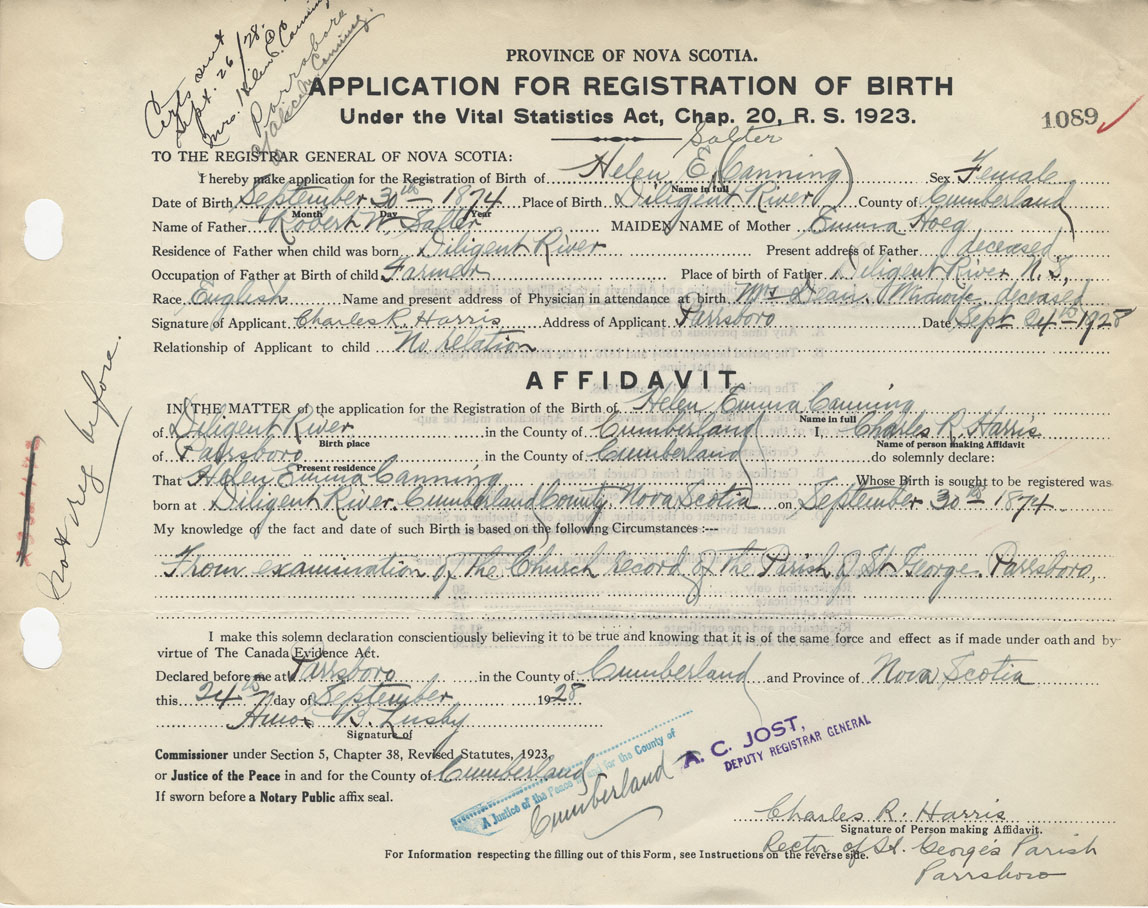 Certs sent
Sept. 26/28.
Mrs. Helen E. Canning
Parrsboro
Canning.
PROVINCE OF NOVA SCOTIA.
APPLICATION FOR REGISTRATION OF BIRTH
Under the Vital Statistics Act, Chap. 20, R. S. 1923.
1089
Salter
TO THE REGISTRAR GENERAL OF NOVA SCOTIA:
I hereby make application for the Registration of Birth of Helen E. (Canning) Sex Female
Name in full
Date of Birth September 30th – 1874 Place of Birth Diligent River County of Cumberland
Month Day Year
Name of Father Robert W. Salter MAIDEN NAME of Mother Emma Hoeg
Residence of Father when child was born Diligent River Present address of Father deceased
Occupation of Father at Birth of child Farmer Place of birth of Father Diligent River N.S.
Race English Name and present address of Physician in attendance at birth Mrs Dean Midwife deceased
Signature of Applicant Charles R. Harris Address of Applicant Parrsboro Date Sept 24th – 1928
Relationship of Applicant to child No relation
AFFIDAVIT
IN THE MATTER of the application for the Registration of the Birth of Helen Emma Canning
Name in full
of Diligent River in the County of Cumberland I, Charles R. Harris
Birth place Name of person making Affidavit
of Parrsboro in the County of Cumberland do solemnly declare:
Present residence
That Helen Emma Canning Whose Birth is sought to be registered was
born at Diligent River, Cumberland County, Nova Scotia on September 30th 1874
My knowledge of the fact and date of such Birth is based on the following Circumstances :—
From examination of the Church record of the Parish of St. George Parrsboro,
I make this solemn declaration conscientiously believing it to be true and knowing that it is of the same force and effect as if made under oath and by
virtue of The Canada Evidence Act.
Declared before me at Parrsboro in the County of Cumberland and Province of Nova Scotia
this 24th day of September 1928
Amos B. Lusby
Signature of
Commissioner under Section 5, Chapter 38, Revised Statutes, 1923,
or Justice of the Peace in and for the County of Cumberland
If sworn before a Notary Public affix seal.
A Justice of the Peace in and for the County of
Cumberland
A. C. JOST,
DEPUTY REGISTRAR GENERAL
Charles R. Harris
Signature of Person making Affidavit.
Rector of St. George's Parish
Parrsboro
For Information respecting the filling out of this Form, see Instructions on the reverse side.
Not reg before.